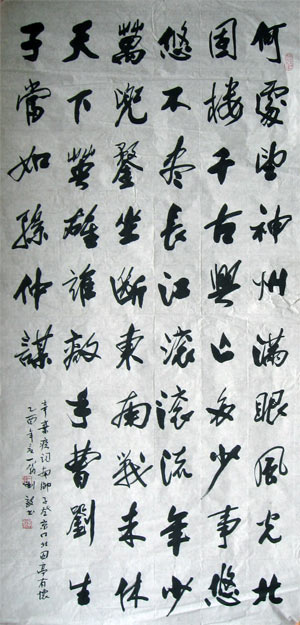 何處望神州滿眼風光北
固樓千古興亡多少事悠
悠不盡長江滾滾流年少
萬兜鍪坐斷東南戰未休
天下英雄誰敵手曹劉生
子當如孫仲謀
辛棄疾詞南鄉子登京口北固亭有懷
乙酉年